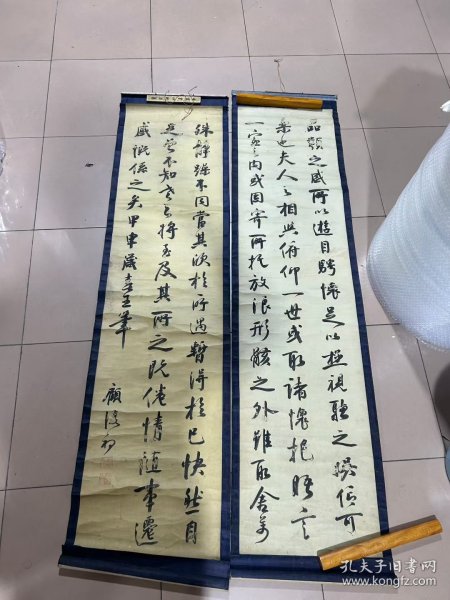 品類之盛所以遊目騁懷足以極視聽之娛信可
樂也夫人之相與俯仰一世或取諸懷抱晤言
一室之内或因寄所托放浪形骸之外雖取舍萬
殊靜躁不同當其欣於所遇暫得於己快然自
足曾不知老之將至及其所之既倦情隨事遷
感慨係之矣甲申歲
孔夫子旧书网
www.kongfz.com